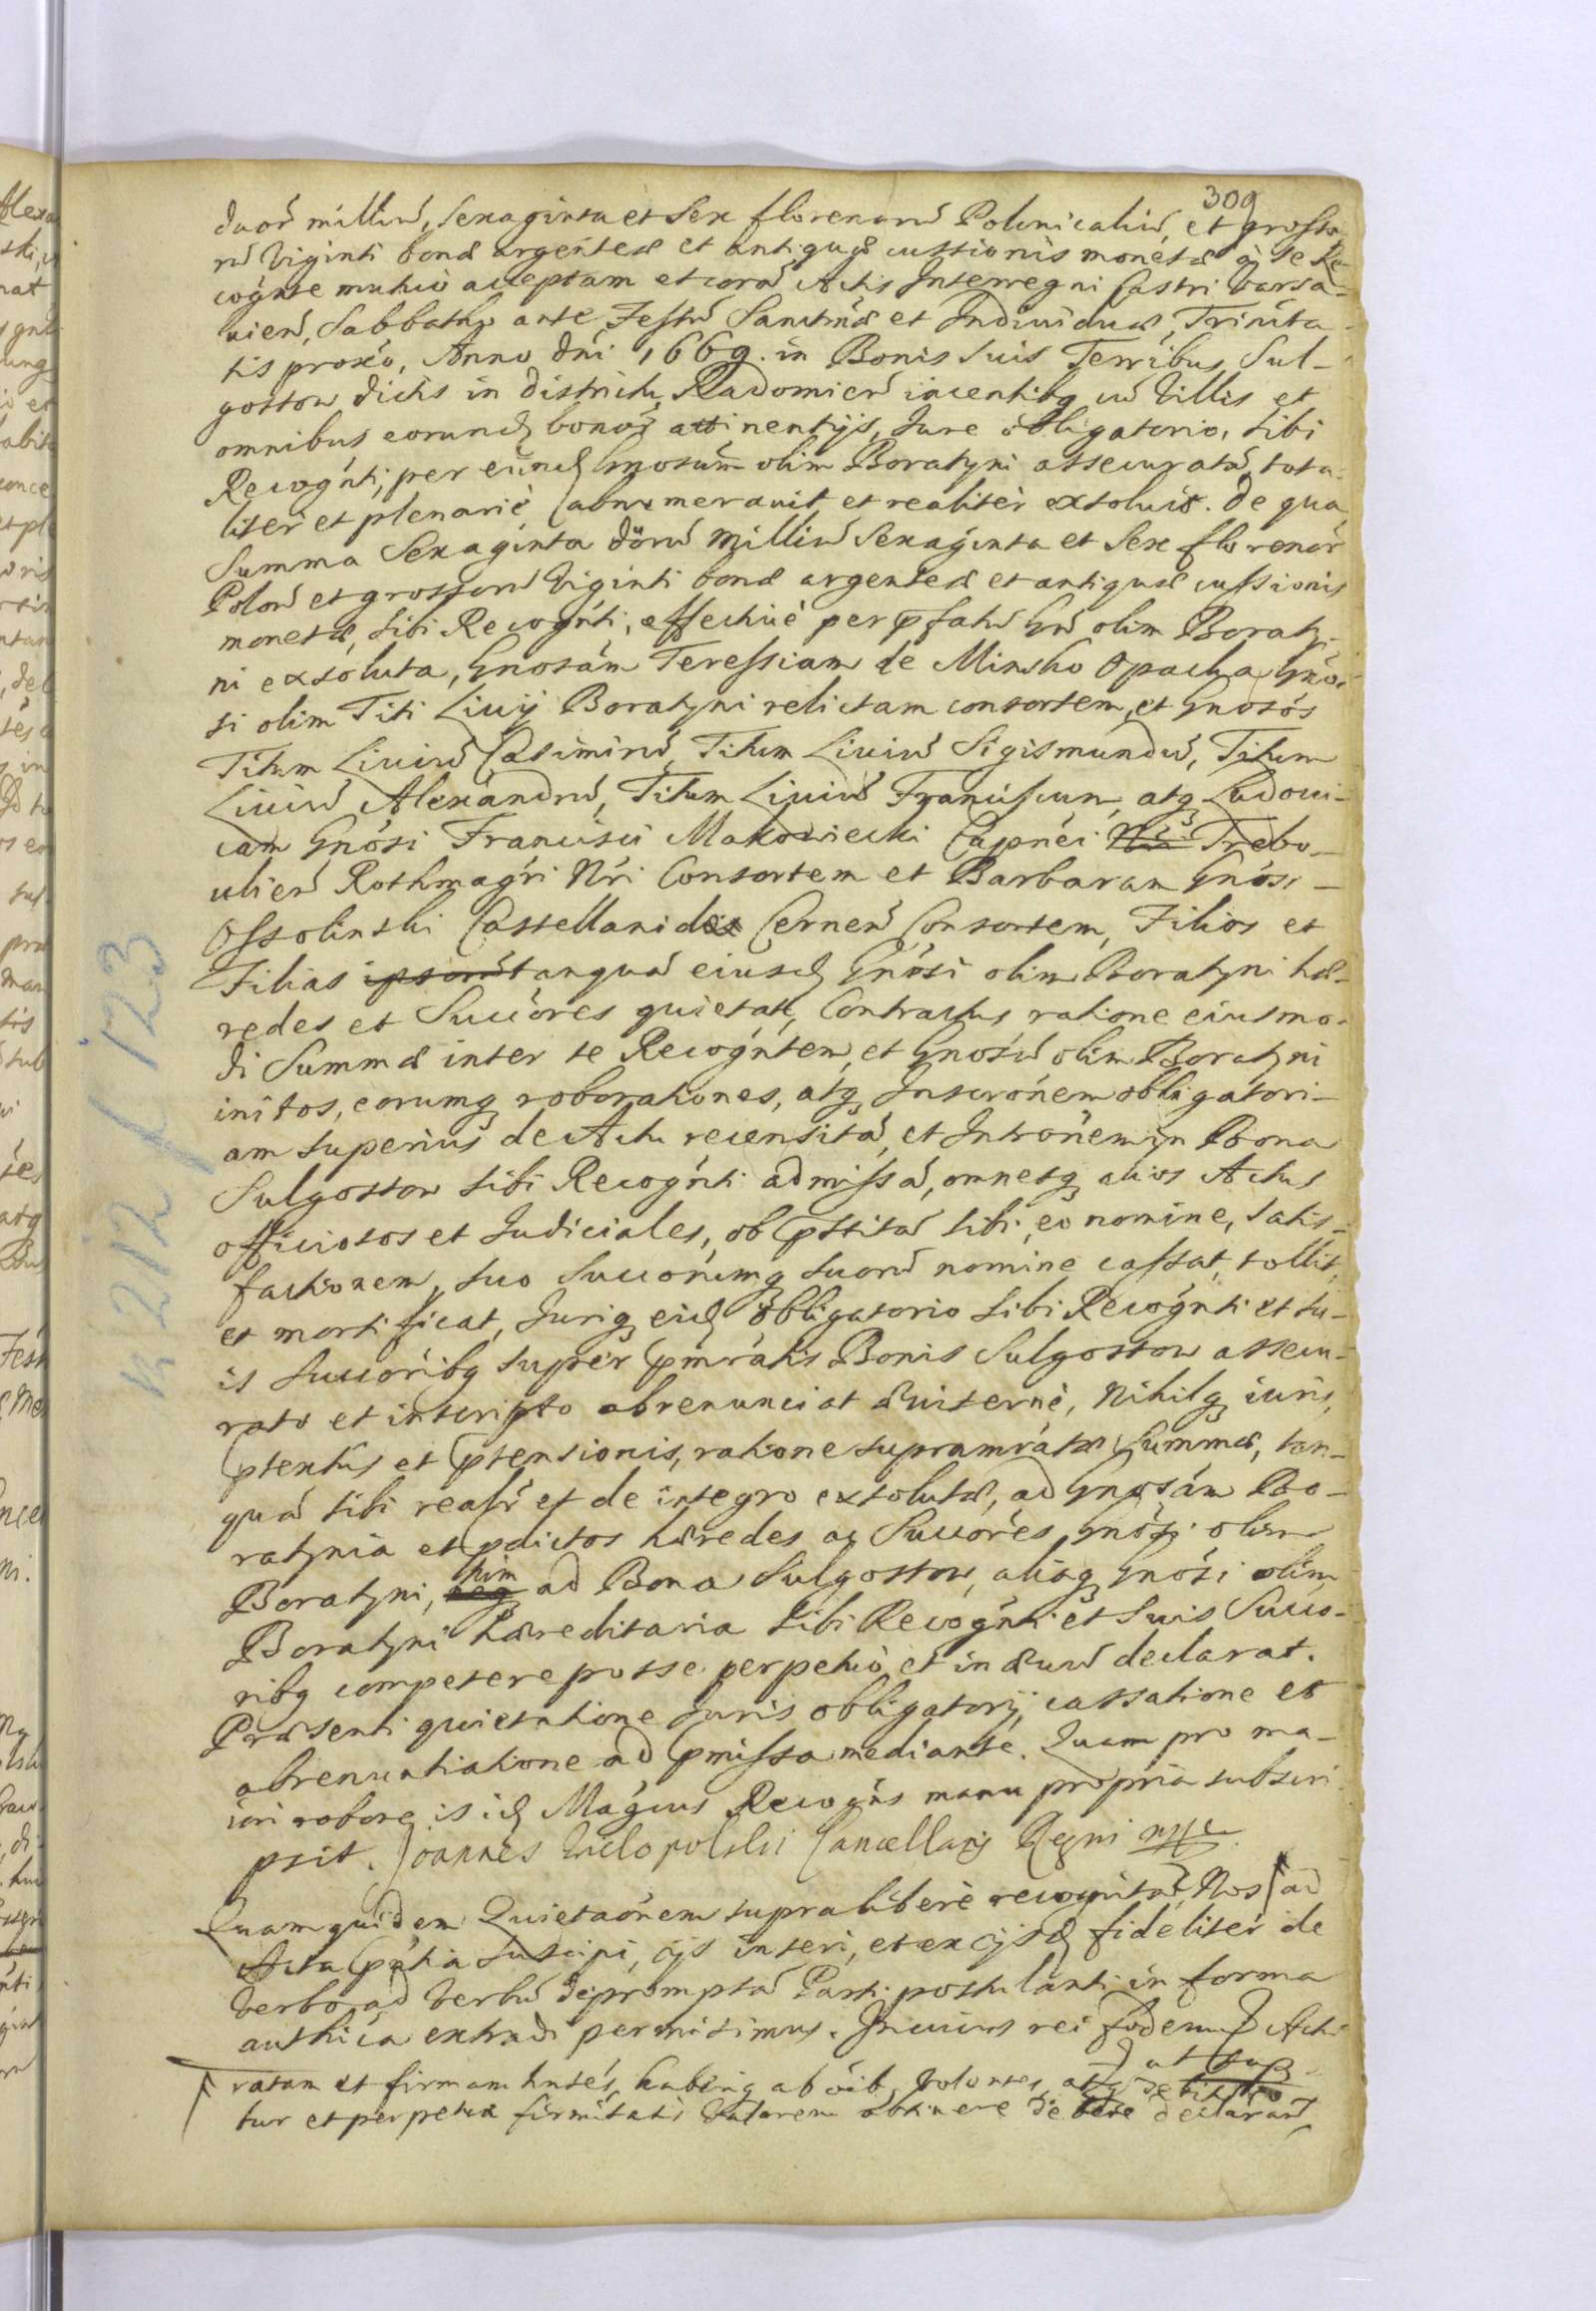 309
duor̃ milliũ, Sexaginta et Sex florenorũ Polonicaliũ, et grosso-
rũ Viginti bonæ argenteæ et antiquæ cussionis monetæ à se Re-
cogńte mutuò acceptam et corã Actis Interregni Castri Varsa-
vieñ, Sabbatho ante Festũ Sanctmæ et Individuæ Trinita-
tis proxo, Anno dni 1669. in Bonis suis Terribus Sul-
gostow dictis in districtu Radomieñ iacentibq cũ Villis et
omnibus eorund bonor̃ attinentijs, Jure obligatorio, sibi
Recogńti, per eund Gnosum olim Boratyni assecuratã, tota-
liter et plenariè adnumeravit et realiter exsoluit. De qua
Summa Sexaginta dũorũ Milliũ Sexaginta et Sex florenor̃
Poloñ et grossorũ Viginti bonæ argenteæ et antiquæ cussionis
monetæ, sibi Recogńti, effectiuè per pfatũ Gñ olim Boraty-
ni exsoluta, Gnosám Teressiam de Minsko Opacka Gnó-
si olim Titi Liuij Boratyni relictam consortem, et Gnosós
Titum Liuiũ Casimirũ, Titum Liuiũ Sigismundũ, Titum
Liuiũ Alexandrũ, Titum Liuiũ Franciscum, atq Ludoui-
cam Gnósi Francisci Makowiecki Capnéi Trebo-
ulieñ Rothmagri Nri Consortem et Barbaram Gnósi
Ossolinski Castellanidæ Cerneñ Consortem, Filios et
Filias ipsorũ tanquã eiusd Gnósi olim Boratyni hæ-
redes et Succóres quietat, Contractus ratione eiusmo-
di Summæ inter se Recogńtem, et Gnosũ olim Boratyni
initos, eorumq roborationes, atq Inscrónem obligatori-
am superius de Actu recensitã, et Intrónem in Bona
Sulgostow sibi Recogńti admissã, omnesq alios Actus
officiosos et Judiciales, ob pstitã sibi, eo nomine, satis-
factionem, suo Succorumq suorũ nomine cassat, tollit,
et mortificat, Juriq eid obligatorio sibi Recogńti et su-
is Succóribq super pmratis Bonis Sulgostow assecu-
rato et inscripto abrenunciat æuiternè, Nihilq iuris,
ptextus et ptensionis, ratione supramratæ Summæ, tan-
quã sibi realr̃ et de integro exsolutæ, ad Gnosám Bo-
ratynia et pdictos hæredes ac Succóres Gnósi olim
Boratyni, neq tum ad Bona Sulgostow, aliaq Gnósi olim
Boratyni hæreditaria sibi Recogńti et Suis Succo-
ribq competere posse perpetuò et in æuũ declarat.
Præsenti quietatione Juris obligatorij cassatione et
abrenuntiatione ad pmissa mediante. Quam pro ma-
iori robore is id Mágcus Recogńs manu propria subscri-
psit. Joannes Wielopolski Cancellarg Regni mpp
Quam quidem Quietaónem supra liberè recognitã, Nos ad
Acta pntia suscipi, ijs inseri, et ex ijsd fideliter de
Verbo ad Verbũ depromptã Parti postulanti in forma
authica extradi permisimus. In cuius rei fidem Actu
ut sup
ratam et firmam hntés, haberiq ab oib. Volentes, atq debitu ro-
tur et perpetuæ firmitatis Valorem obtinere debere declarañ,
n 212 f 123